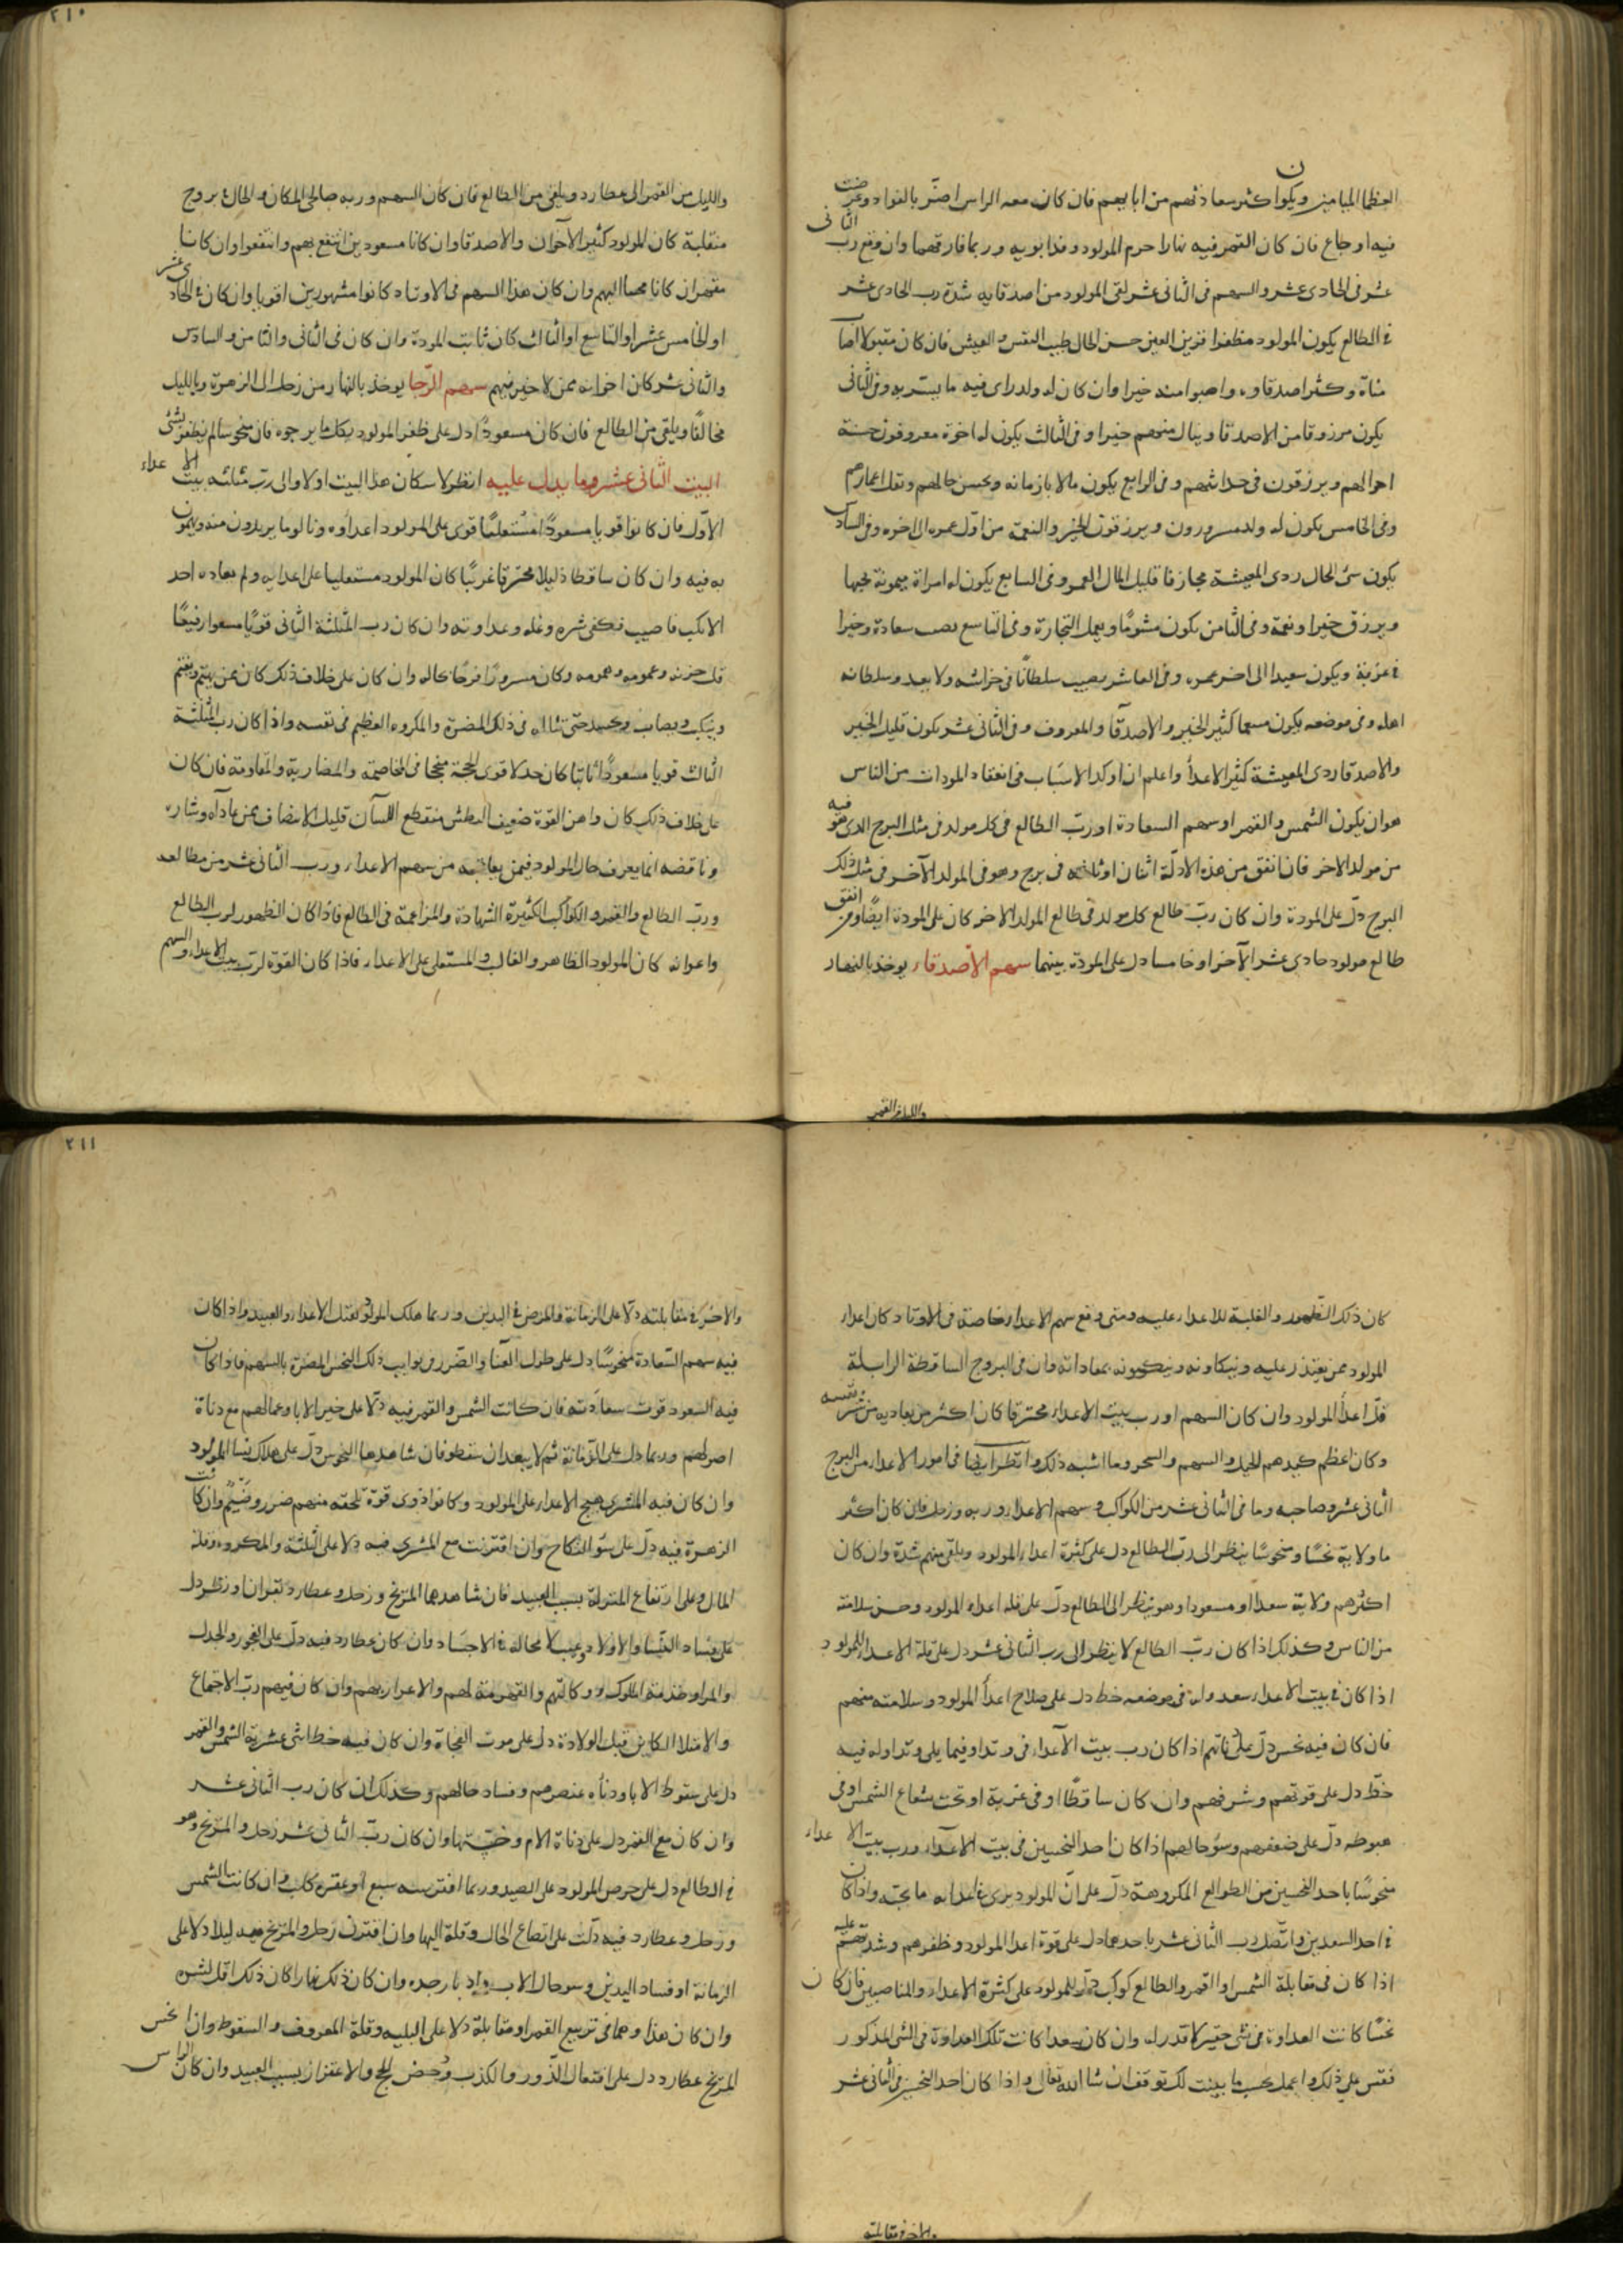 العظما الميامين ويكون اكثر سعادتهم من ابايهم فان كان معه الراس اضر بالفواد وعرضت
فيه اوجاع فان كان القمر فيه نهارا حرم المولود وفدا بويه وربما فارقهما وان وقع رب الثانى
عشر فى الحادى عشر والسهم فى الثانى عشر لقى المولود من اصدقايه شدة رب الحادى عشر
فى الطالع يكون المولود مظفرا قرير العين حسن الحال طيب النفس والعيش فان كان مقبولا اصاب
مناه وكثر اصدقاوه واصابوا منه خيرا وان كان له ولد راى فيه ما يسر به وفى الثانى
يكون مرزوقا من الاصدقا وينال منهم خيرا وفى الثالث يكون له اخوة معروفون حسنة
احوالهم ويرزقون فى حداثتهم وفى الرابع يكون مالا بازمانه ويحسن حالهم وتقل اعمارهم
وفى الخامس يكون له ولد مسرورون ويرزقون الخير والنعمة من اول عمره الى اخره وفى السادس
يكون سئ الحال ردى المعيشة مجازفا قليل المال والعمر وفى السابع يكون له امراة ميمونة يحبها
ويرزق خيرا ونعمة وفى الثامن يكون مشوما ويعمل التجارة وفى التاسع يصب سعادة وخيرا
فى غربة ويكون سعيدا الى اخر عمره وفى العاشر يصيب سلطانا فى حداثته ولا يعد وسلطانه
اهله وفى موضعه يكون كثير الخير والاصدقا والمعروف وفى الثانى عشر يكون قليل الخير
والاصدقا ردى المعيشة كثير الاعدأ واعلم ان اوكد الاسباب فى انعقاد المودات من الناس
هو ان يكون الشمس والقمر او سهم السعادة او رب الطالع فى كل مولد فى مثل البرج الذى هو فيه
من مولد الاخر فان اتفق من هذه الادلة اثنان او ثلثه فى برج وهو فى المولد الاخر فى مثل ذلك
البرج دل على المودة وان كان رب طالع كل مولد فى طالع المولد الاخر كان على المودة ايضا ومن اتفق
طالع مولود حادى عشر الآخر او خامسا دل على المودة بينهما سهم الاصدقاء يوخذ بالنهار
والليل من القمر
٢١٠
والليل من القمر الى عطارد ويلقى من الطالع فان كان السهم وربه صالحى المكان والحال فى بروج
منقلبة كان المولود كثير الاخوان والاصدقا وان كانا مسعودين انتفع بهم وانتفعوا وان كانا
مقهران كانا محبا اليهم وان كان هذا السهم فى الاوتاد كانوا مشهورين اقويا وان كان فى الحادى عشر
او الخامس عشر او التاسع او الثالث كان ثابت المودة وان كان فى الثانى والثامن والسادس
والثانى عشر كان اخوانه ممن لا خير فيهم سهم الرجا يوخذ بالنهار من زحل الى الزهرة وبالليل
مخالفا ويلقى من الطالع فان كان مسعودا دل على ظفر المولود بكل ما يرجوه فان منحوسا لم يظفر بشئ
البيت الثانى عشر وما يدل عليه انظر لاسكان هذا البيت اولا والى رب مثلثه بيت الاعداء
الاول فان كانوا قويا مسعودا مستعليا قوى على المولود اعداوه ونالوا ما يريدون منه
به فيه وان كان ساقطا ذليلا محترقا غريبا كان المولود مستعليا على اعدايه ولم يعاده احد
الا نكب فاصيب فكفى شره وغله وعداوته وان كان رب المثلثة الثانى قويا مسعودا رفيعا
قل حزنه وغمومه وهمومه وكان مسرورا فرحا بحاله وان كان على خلاف ذلك كان ممن يهتم ويغتم
وينكب ويصاب ويحسد حتى تناله فى ذلك المضرة والمكروه العظيم فى نفسه واذا كان رب المثلثة
الثالث قويا مسعودا ثابتا كان جدلا قوى الحجة منجحا فى المخاصمة والمضاربة والمقاومة فان كان
على خلاف ذلك كان واهن القوة ضعيف البطش منقطع اللسان قليل الانصاف ممن عاداه وشاره
وناقضه انما يعرف حال المولود فيمن يعاتبه من سهم الاعداء ورب الثانى عشر من مطالعه
ورب الطالع والقمر والكواكب الكثيرة الشهادة والمزاعمة فى الطالع فاذا كان الظهور لرب الطالع
واعوانه كان المولود الظاهر والغالب والمستعلى على الاعداء فاذا كان القوة لرب بيت الاعداء والسهم
كان ذلك الظهور والغلبة للاعداء عليه ومتى وقع سهم الاعداء خاصة فى الاوتاد كان اعداء
المولود ممن يقتدر عليه وينكاونه وينكبونه بمعاداته وان فى البروج الساقطة الزايلة
قل اعدأ المولود وان كان السهم او رب بيت الاعداء محترقا كان اكثر من يعاديه من شر نفسه
وكان اعظم كيدهم الحيل والسهم والسحر وما اشبه ذلك وانظر ايضا فى امور الاعداء من البرج
الثانى عشر وصاحبه وما فى الثانى عشر من الكواكب وسهم الاعداء وربه وزحل فان كان اكثر
ما ولايته نحسا ومنحوسا ينظر الى رب الطالع دل على كثرة اعداء المولود ويلقى منهم شدة وان كان
اكثرهم ولاية سعدا او مسعودا وهو ينظر الى الطالع دل على قلة اعداء المولود وحسن سلامته
من الناس وكذلك اذا كان رب الطالع لا ينظر الى رب الثانى عشر دل على قلة الاعداء للمولود
اذا كان فى بيت الاعداء سعد وله فى موضعه حظ دل على صلاح اعدأ المولود وسلامته منهم
فان كان فيه نحس دل على اذا كان رب بيت الاعداء فى وتد او فيما يلى وتد او له فيه
حظ دل على قوتهم وشرفهم وان كان ساقطا او فى غربة او تحت شعاع الشمس او فى
هبوطه دل على ضعفهم وسؤ حالهم اذا كان احد النحسين فى بيت الاعداء ورب بيت الاعداء
منحوسا باحد النحسين من الطوالع المكروهة دل على ان المولود يرى فى اعدايه ما يحبه واذا كان
فى احد السعدين واتصل رب الثانى عشر باحدهما دل على قوة اعدا المولود وظفرهم وشدتهم عليه
اذا كان فى مقابلة الشمس او القمر والطالع كوكب دل للمولود على كثرة الاعداء والمناصبين فان كان
نحسا كانت العداوة فى شئ حقير لا قدر له وان كان سعدا كانت تلك العداوة فى الشئ المذكور
فقس على ذلك واعمل بحسب ما بينت لك توفق ان شا الله تعالى واذا كان احد النحسين فى الثانى عشر
والاخر فى مقابلته
٢١١
والاخر فى مقابلته دلا على الزمانة والمرض فى اليدين وربما هلك المولود بقتل الاعداء والعبيد واذا كان
فيه سهم السعادة منحوسا دل على طول العنا والضرر ذلك النحس المضرة بالسهم فاذا كان
فيه السعود قوت سعادته فان كانت الشمس والقمر فيه دلا على خير الابا وعمالهم مع دناة
اصولهم وربما دل على الزمانة ثم لا يبعد ان سقط فان شاهدها النحوس دل على هلاك نسا المولود
وان كان فيه المشترى هيج الاعداء على المولود وكانوا ذوى قوة تلحقه منهم ضرر وضيم وان كانت
الزهرة فيه دل على سؤ النكاح وان اقترنت مع المشترى فيه دلا على الثلثة والمكروه وقلة
المال وعلى ارتفاع المنزلة بسبب العبيد فان شاهدهما المريخ وزحل وعطارد بقران او نظر دل
على فساد النسا والاولاد وعيب لا محالة فى الاجساد وان كان عطارد فيه دل على الفجور والجدل
والمراو خدمة الملوك ووكالتهم والقهرمة لهم والاعرار بهم وان كان فيهم رب الاجتماع
والامتلا الكاين قبل الولادة دل على موت الفجأة وان كان فيه حظ اثنى عشرية الشمس والقمر
دل على سقوط الابا ودناه عنصرهم وفساد حالهم وكذلك ان كان رب الثانى عشر
وان كان مع القمر دل على دناة الام وخسيتها وان كان رب الثانى عشر زحل والمريخ وهو
فى الطالع دل على حرص المولود على الصيد وربما افترسه سبع او عقره كلب وان كانت الشمس
وزحل وعطارد فيه دلت على اتضاع الحال وقلة اليها وان اقترن زحل والمريخ معه ليلا دلا على
الزمانة او فساد اليدين وسو حال الاب وادبار جده وان كان ذلك نهارا كان ذلك اقل لشره
وان كان هذا وهما فى تربيع القمر او مقابلة دلا على البليه وقلة المعروف والسقوط وان نحس
المريخ عطارد دل على افتعال الزور والكذب ودحض الحج والاعتزاز بسبب العبيد وان كان الراس